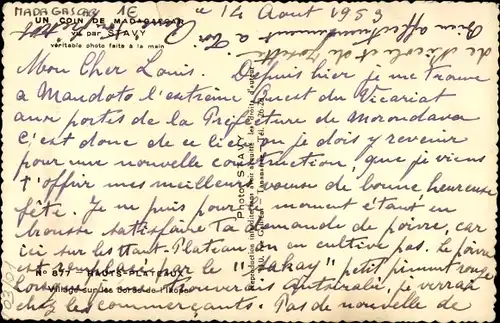 MADAGASCAR 1E
le 14 Aout 1953
UN COIN DE MADAGASCAR
vu par STAVY
véritable photo faite à la main
Bien affectueusement à Toi.
de Nicole et de
Mon Cher Louis. Depuis hier je me trouve
a Mandoto l'extrême Ouest du Vicariat
aux portes de la Préfecture de Morondava
c'est donc de ce lieu où je dois y revenir
pour une nouvelle construction, que je viens
t'offrir mes meilleurs voeux de bonne heureuse
fête. Je ne puis pour le moment étant en
brousse satisfaire Ta demande de poivre, car
ici sur les Haut. Plateaux on en cultive pas. Le poivre
est remplacé par le "Sakay" petit piment rouge
Nº 877 HAUTS-PLATEAUX
Village sur les bords de l'Ikopa
je verrai
chez les commerçants. Pas de nouvelle de
Photo STAVY
Reproduction interdite